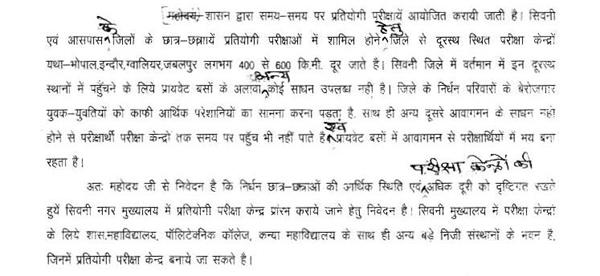 महोदय, शासन द्वारा समय-समय पर प्रतियोगी परीक्षायें आयोजित करायी जाती है। सिवनी
एवं आसपास के जिलों के छात्र-छात्रायें प्रतियोगी परीक्षाओं में शामिल होने हेतु जिले से दूरस्थ स्थित परीक्षा केन्द्रों
यथा-भोपाल,इन्दौर,ग्वालियर,जबलपुर लगभग 400 से 600 कि.मी. दूर जाते है। सिवनी जिले में वर्तमान में इन दूरस्थ
स्थानों में पहुँचने के लिये प्रायवेट बसों के अलावा अन्य कोई साधन उपलब्ध नही है। जिले के निर्धन परिवारों के बेरोजगार
युवक-युवतियों को काफी आर्थिक परेशानियों का सामना करना पड़ता है. साथ ही अन्य दूसरे आवागमन के साधन नही
होने से परीक्षार्थी परीक्षा केन्द्रो तक समय पर पहुँच भी नहीं पाते है एवं प्रायवेट बसों में आवागमन से परीक्षार्थियों में भय बना
रहता है।
अतः महोदय जी से निवेदन है कि निर्धन छात्र-छत्राओं की आर्थिक स्थिति एवं परीक्षा केन्द्रों की अधिक दूरी को दृष्टिगत रखते
हुयें सिवनी नगर मुख्यालय में प्रतियोगी परीक्षा केन्द्र प्रांरभ कराये जाने हेतु निवेदन है। सिवनी मुख्यालय में परीक्षा केन्द्रों
के लिये शास.महाविद्यालय, पॉलिटेक्निक कॉलेज, कन्या महाविद्यालय के साथ ही अन्य बड़े निजी संस्थानों के भवन है,
जिनमें प्रतियोगी परीक्षा केन्द्र बनाये जा सकते है।